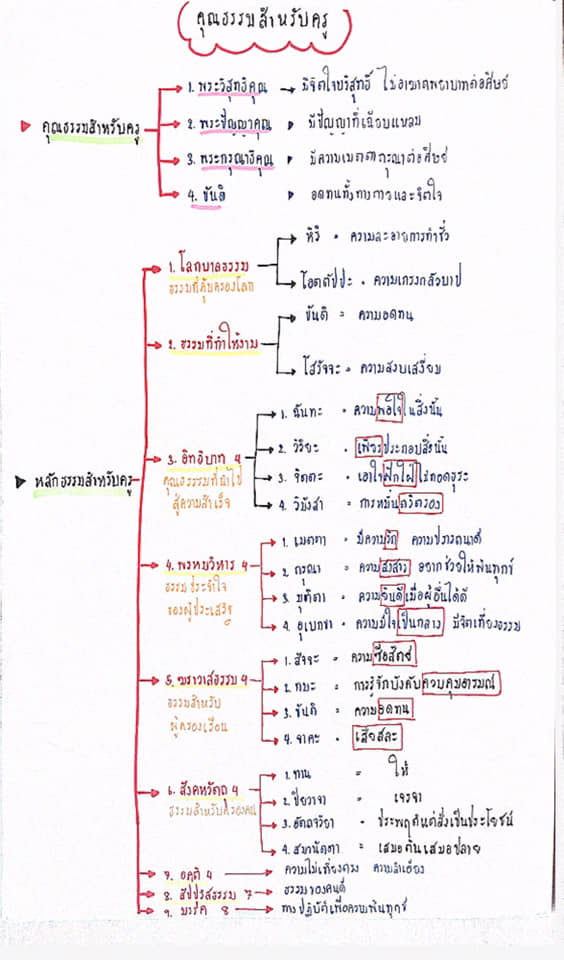 คุณธรรมสำหรับครู
คุณธรรมสำหรับครู
1. พระวิสุทธิคุณ → มีจิตใจบริสุทธิ์ ไม่อาฆาตพยาบาทต่อศิษย์
2. พระปัญญาคุณ มีปัญญาที่เฉียบแหลม
3. พระกรุณาธิคุณ มีความเมตตากรุณาต่อศิษย์
4. ขันติ อดทนทั้งทางกายและจิตใจ
หลักธรรมสำหรับครู
1. โลกบาลธรรม
ธรรมที่คุ้มครองโลก
หิริ = ความละอายการทำชั่ว
โอตตัปปะ = ความเกรงกลัวบาป
2. ธรรมที่ทำให้งาม
ขันติ = ความอดทน
โสรัจจะ = ความสงบเสงี่ยม
3. อิทธิบาท 4
คุณธรรมที่นำไป
สู่ความสำเร็จ
1. ฉันทะ = ความพอใจในสิ่งนั้น
2. วิริยะ = เพียรประกอบสิ่งนั้น
3. จิตตะ = เอาใจฝักใฝ่ไม่ทอดธุระ
4. วิมังสา = การหมั่นตริตรอง
4. พรหมวิหาร 4
ธรรมประจำใจ
ของผู้ประเสริฐ
1. เมตตา = มีความรัก ความปรารถนาดี
2. กรุณา = ความสงสาร อยากช่วยให้พ้นทุกข์
3. มุทิตา = ความยินดีเมื่อผู้อื่นได้ดี
4. อุเบกขา = ความมีใจเป็นกลาง มีจิตเที่ยงธรรม
5. ฆราวาสธรรม 4
ธรรมสำหรับ
ผู้ครองเรือน
1. สัจจะ = ความซื่อสัตย์
2. ทมะ = การรู้จักบังคับควบคุมอารมณ์
3. ขันติ = ความอดทน
4. จาคะ = เสียสละ
6. สังคหวัตถุ 4
ธรรมสำหรับครองคน
1. ทาน = ให้
2. ปิยวาจา = เจรจา
3. อัตถจริยา = ประพฤติแต่สิ่งเป็นประโยชน์
4. สมานัตตา = เสมอต้นเสมอปลาย
7. อคติ 4 → ความไม่เที่ยงตรง ความลำเอียง
8. สัปปุริสธรรม 7 → ธรรมของคนดี
9. มรรค 8 → ทางปฏิบัติเพื่อความพ้นทุกข์